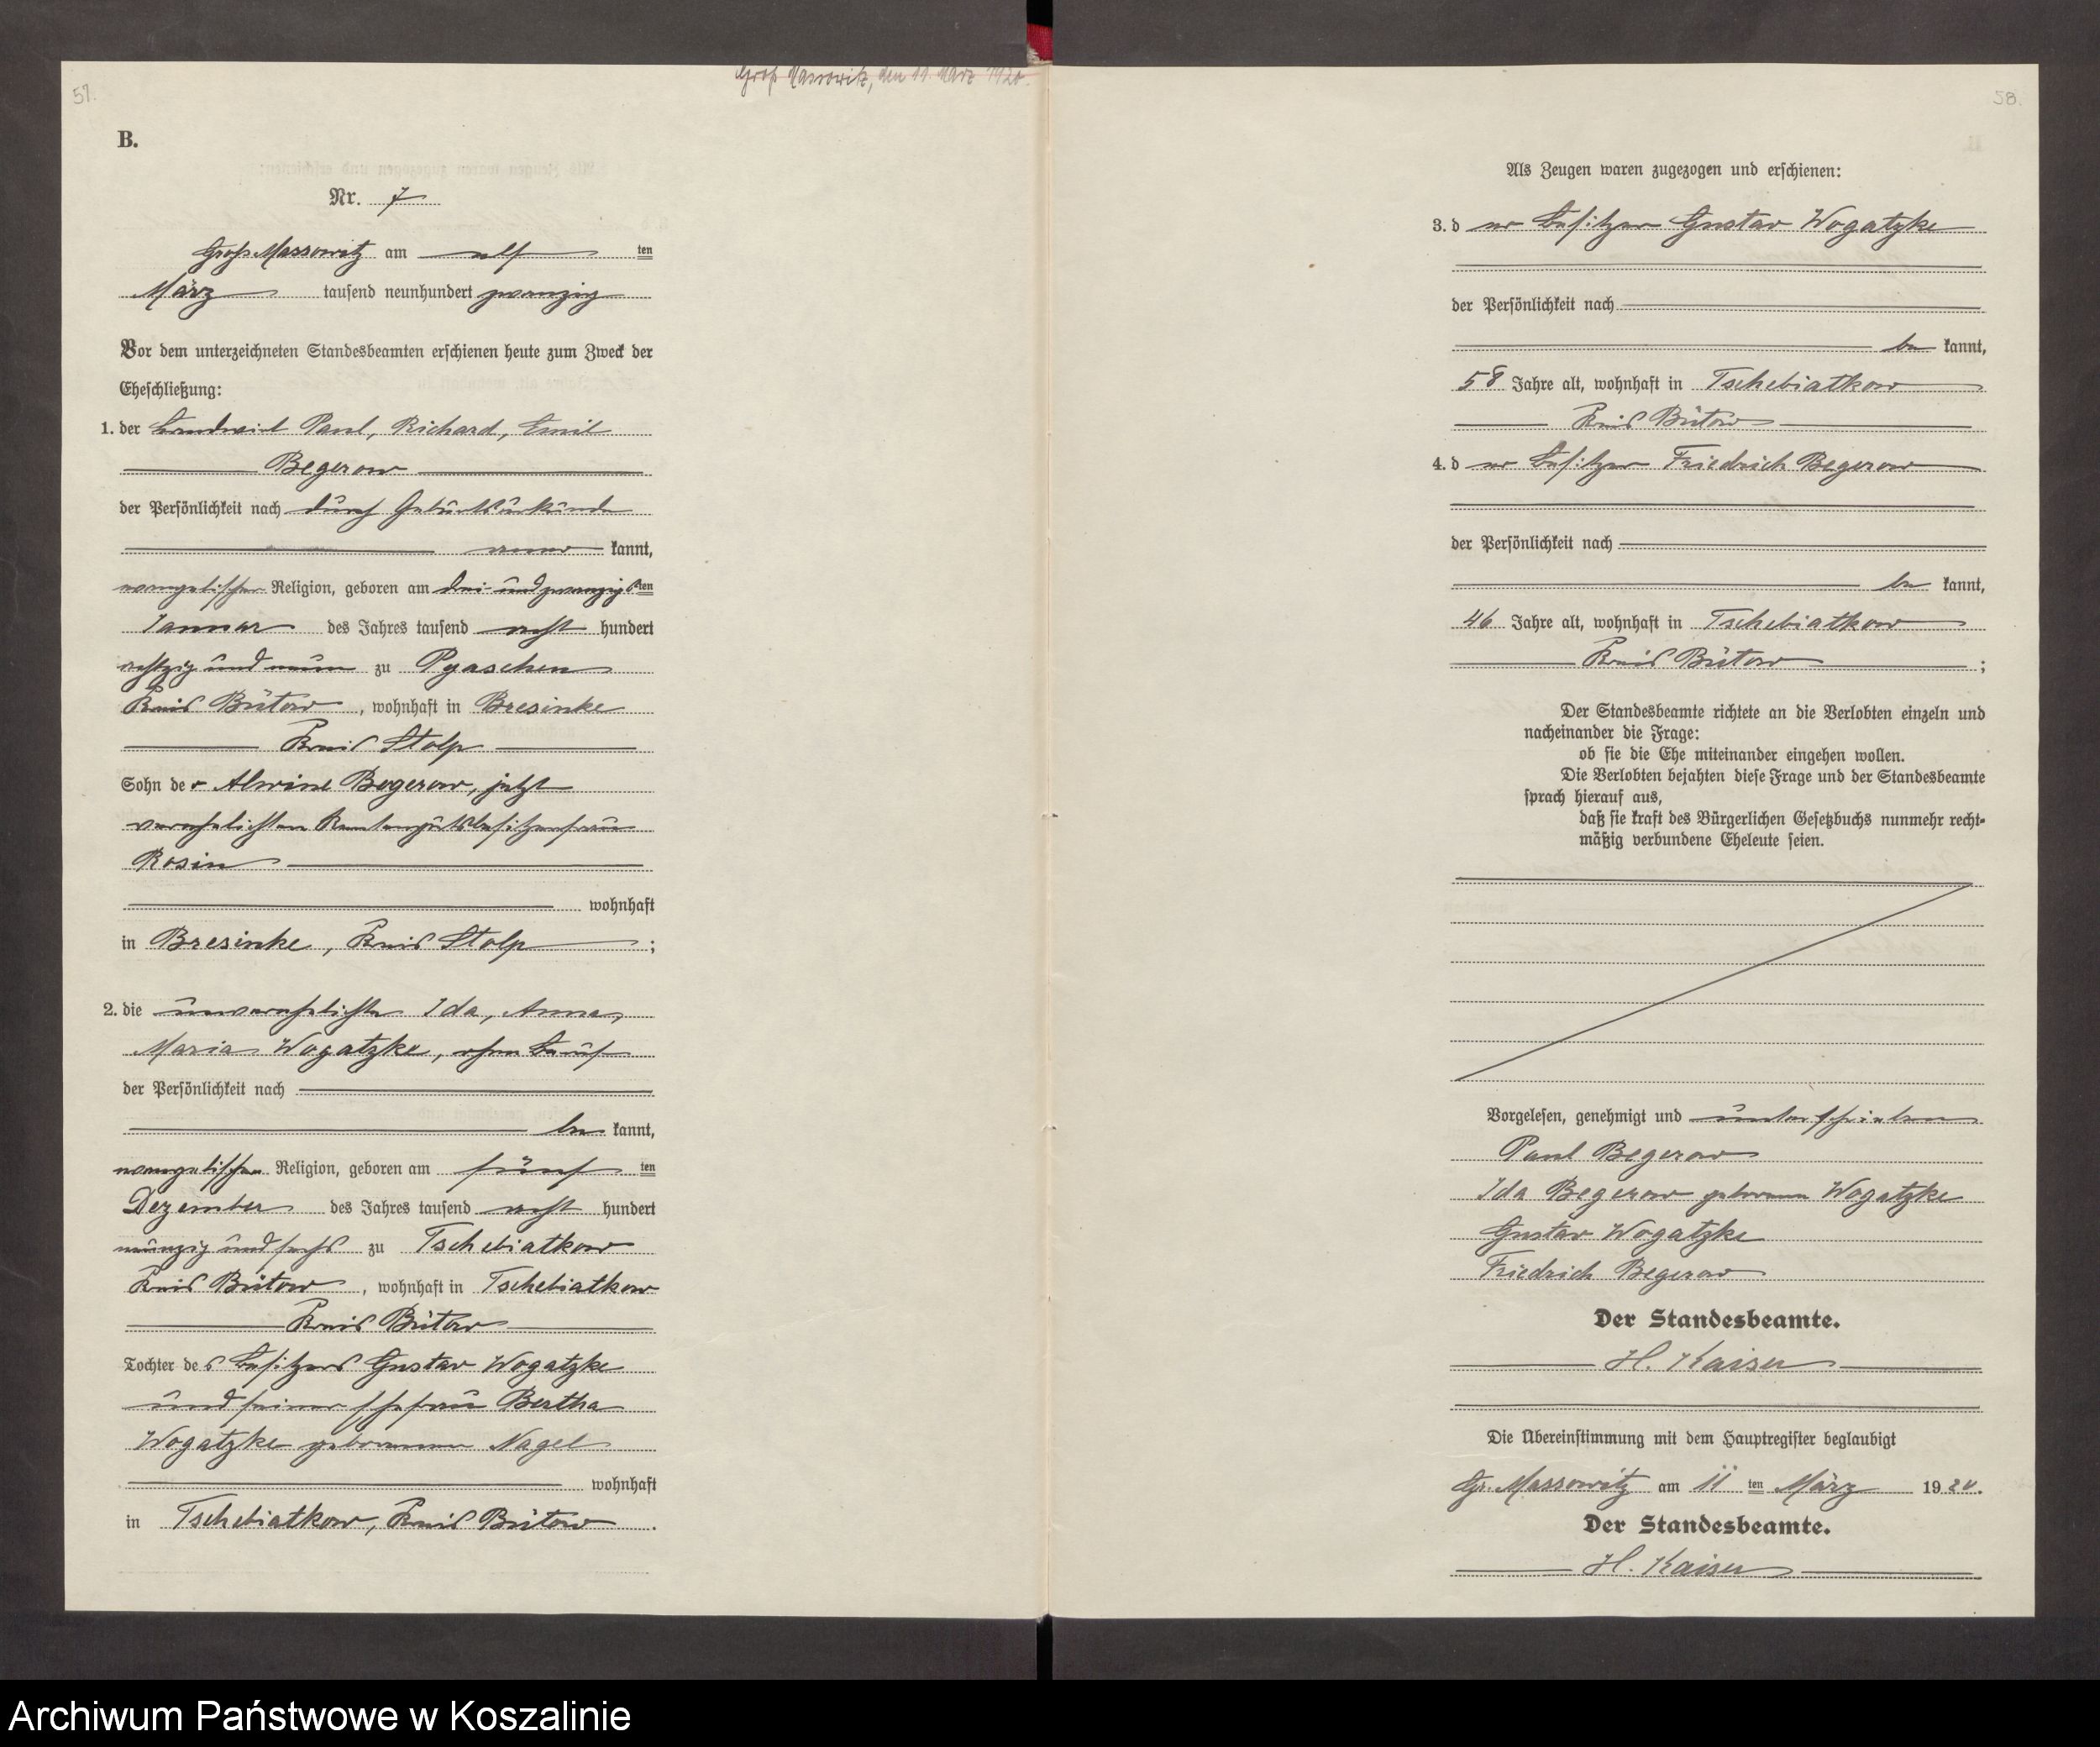 57.
Groß Massowitz, den 11. März 1920.
B.
Nr. 7
Groß Massowitz am elf ten
März tausend neunhundert zwanzig
Vor dem unterzeichneten Standesbeamten erschienen heute zum Zweck der
Eheschließung:
1. der Landwirt Paul, Richard, Emil
Begerow
der Persönlichkeit nach durch Geburtsurkunde
aner kannt,
evangelischer Religion, geboren am drei und zwanzigsten
Januar des Jahres tausend acht hundert
achtzig und neun zu Pyaschen
Kreis Bütow, wohnhaft in Bresinke
Kreis Stolp
Sohn der Alwine Begerow, jetzt
verehelichten Rentengutsbesitzerfrau
Rosin
wohnhaft
in Bresinke, Kreis Stolp ;
2. die unverehelichte Ida, Anna,
Maria Wogatzke, ohne Beruf
der Persönlichkeit nach
be kannt,
evangelischer Religion, geboren am fünf ten
Dezember des Jahres tausend acht hundert
neunzig und sechs zu Tschebiatkow
Kreis Bütow, wohnhaft in Tschebiatkow
Kreis Bütow
Tochter des Besitzers Gustav Wogatzke
und seiner Ehefrau Bertha
Wogatzke geborenen Nagel
wohnhaft
in Tschebiatkow, Kreis Bütow.
58.
Als Zeugen waren zugezogen und erschienen:
3. der Besitzer Gustav Wogatzke
der Persönlichkeit nach
be kannt,
58 Jahre alt, wohnhaft in Tschebiatkow
Kreis Bütow
4. der Besitzer Friedrich Begerow
der Persönlichkeit nach
be kannt,
46 Jahre alt, wohnhaft in Tschebiatkow
Kreis Bütow ;
Der Standesbeamte richtete an die Verlobten einzeln und
nacheinander die Frage:
ob sie die Ehe miteinander eingehen wollen.
Die Verlobten bejahten diese Frage und der Standesbeamte
sprach hierauf aus,
daß sie kraft des Bürgerlichen Gesetzbuchs nunmehr recht-
mäßig verbundene Eheleute seien.
Vorgelesen, genehmigt und unterschrieben
Paul Begerow
Ida Begerow geborene Wogatzke
Gustav Wogatzke
Friedrich Begerow
Der Standesbeamte.
H. Kaiser
Die Übereinstimmung mit dem Hauptregister beglaubigt
Gr. Massowitz am 11 ten März 1920.
Der Standesbeamte.
H. Kaiser
Archiwum Państwowe w Koszalinie